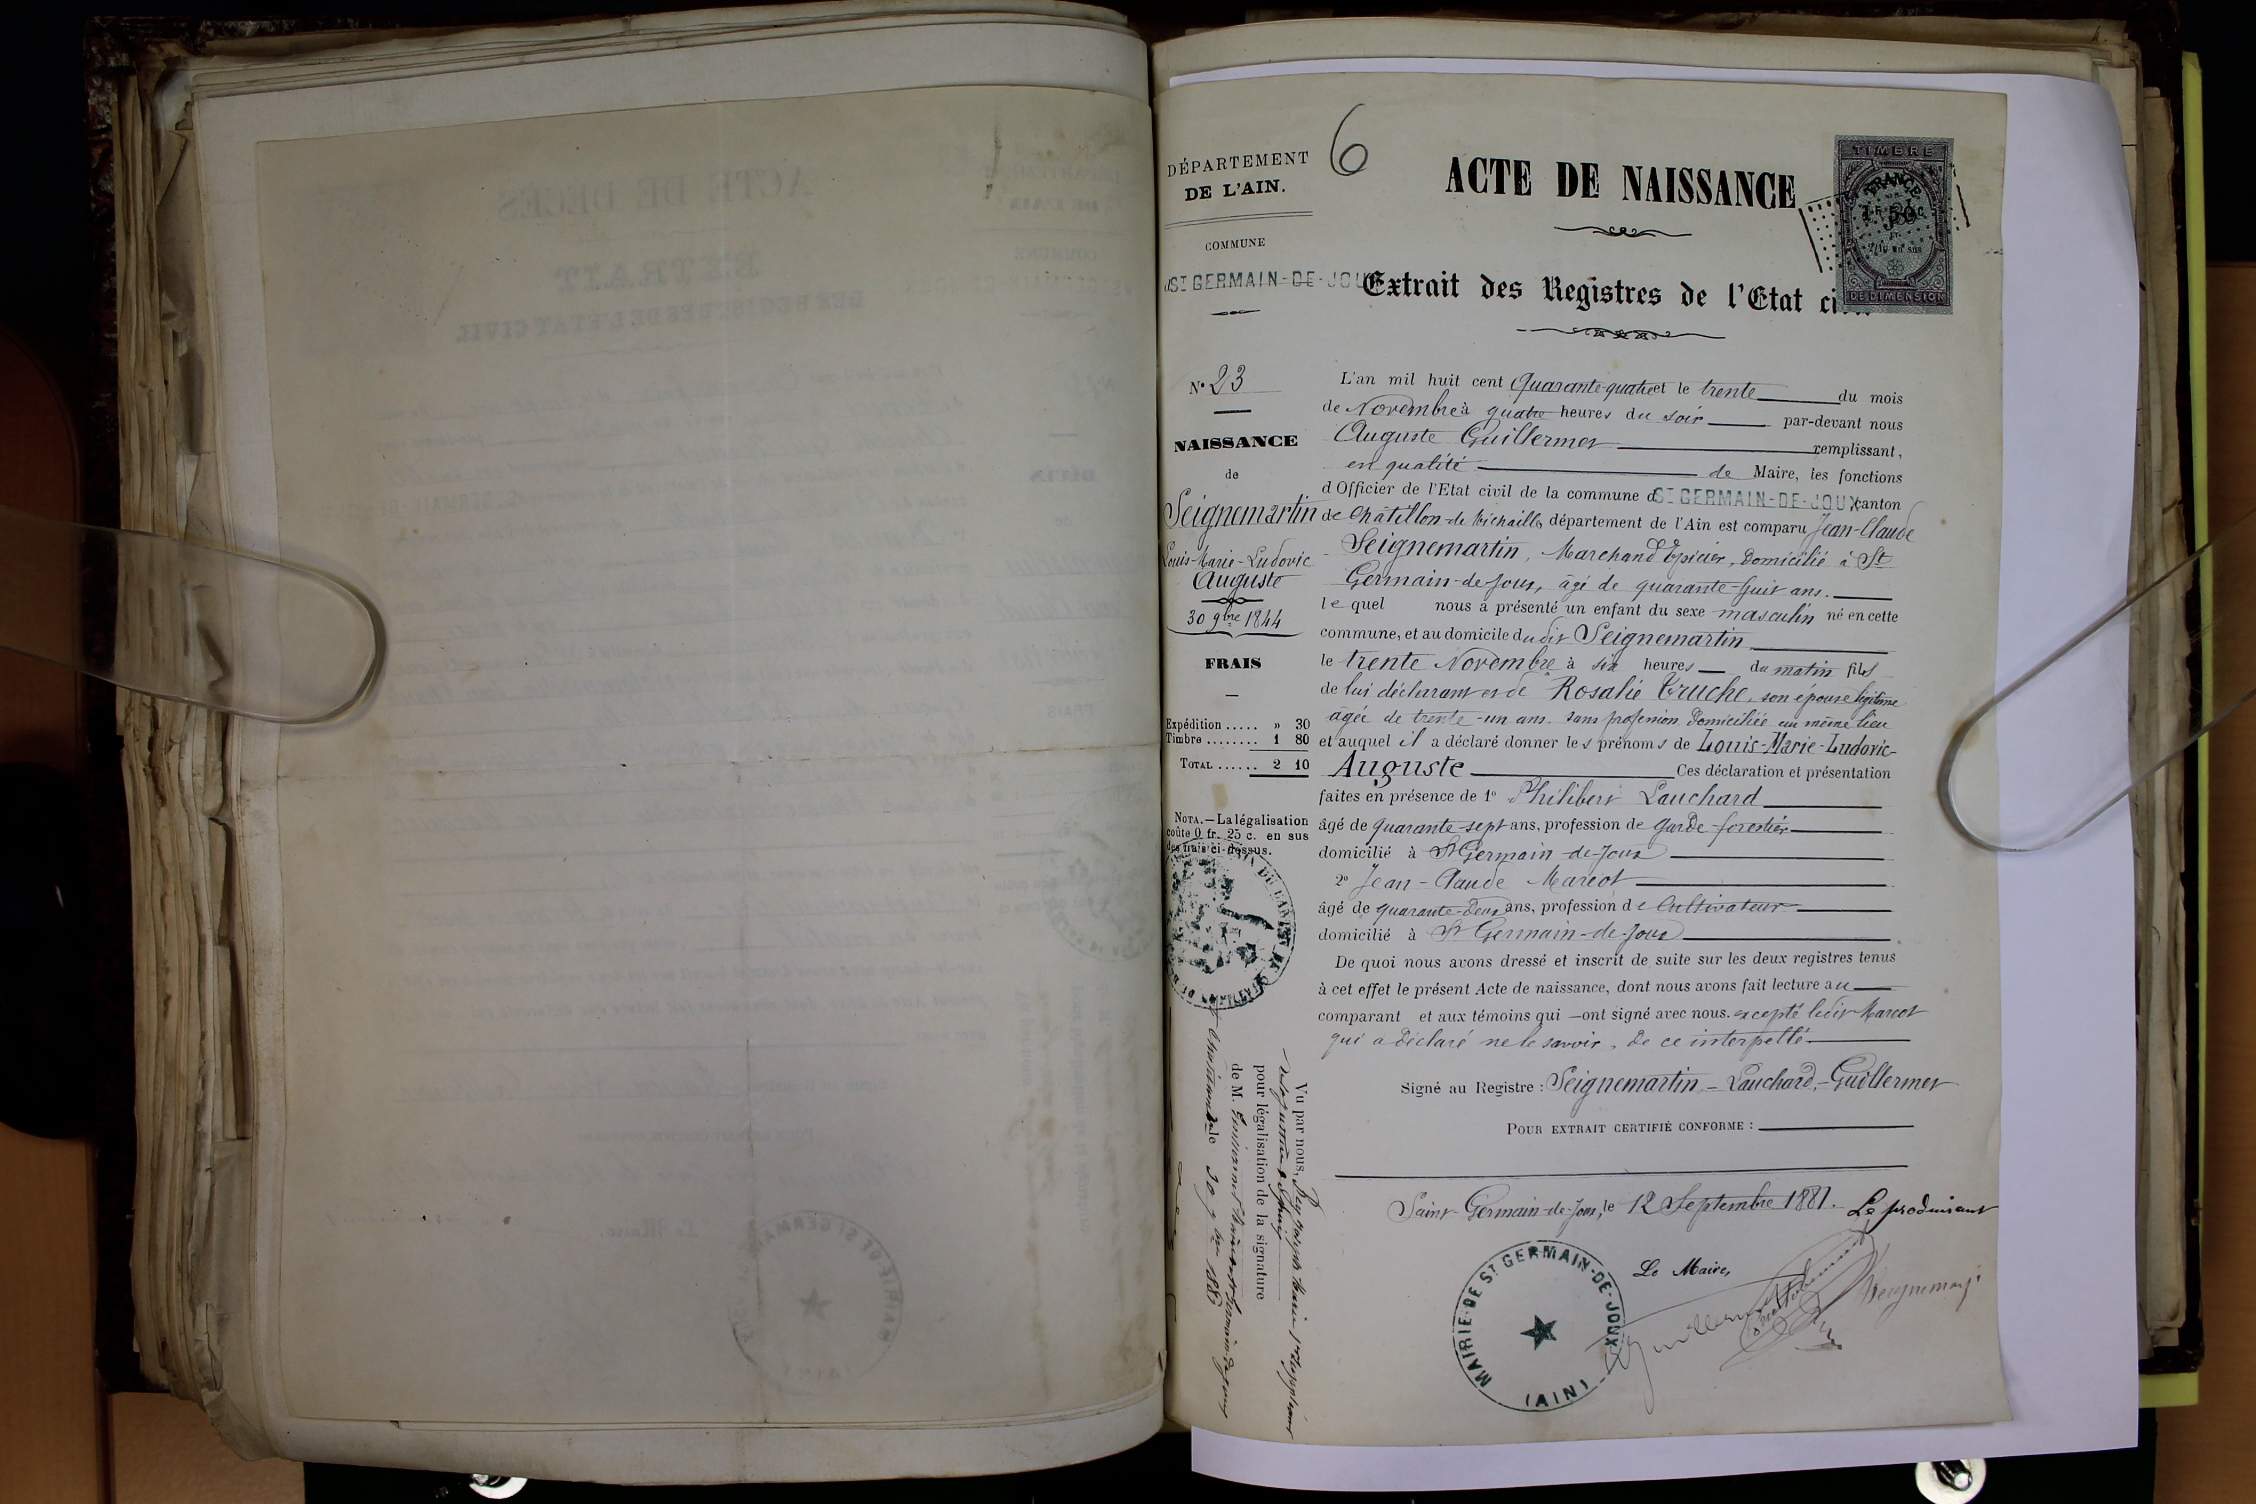 6
DÉPARTEMENT
DE L'AIN.
COMMUNE
ST GERMAIN-DE-JOUX
ACTE DE NAISSANCE
TIMBRE
FRANCE
DE DIMENSION
Extrait des Registres de l'Etat ci
N° 23
NAISSANCE
de
Seignemartin
Louis-Marie-Ludovic
Auguste
30 9bre 1844
FRAIS
Expédition ..... » 30
Timbre ........ 1 80
TOTAL ...... 2 10
NOTA.—La légalisation
coûte 0 fr. 25 c. en sus
des frais ci-dessus.
L'an mil huit cent Quarante-quatre et le trente du mois
de Novembre à quatre heures du soir par-devant nous
Auguste Guillermet remplissant,
en qualité de Maire, les fonctions
d'Officier de l'Etat civil de la commune d ST GERMAIN-DE-JOUX canton
de Châtillon-de-Michaille, département de l'Ain est comparu Jean-Claude
Seignemartin, Marchand Epicier, Domicilié à St
Germain-de-Joux, âgé de quarante-huit ans.
le quel nous a présenté un enfant du sexe masculin né en cette
commune, et au domicile dudit Seignemartin
le trente Novembre à six heures du matin fils
de lui déclarant et de Rosalie Truche, son épouse légitime
âgée de trente-un ans sans profession Domiciliée au même lieu
et auquel il a déclaré donner les prénoms de Louis-Marie-Ludovic-
Auguste Ces déclaration et présentation
faites en présence de 1° Philibert Lauchard
âgé de quarante-sept ans, profession de garde-forestier
domicilié à St Germain-de-Joux
2° Jean-Claude Marcot
âgé de quarante-deux ans, profession de Cultivateur
domicilié à St Germain-de-Joux
De quoi nous avons dressé et inscrit de suite sur les deux registres tenus
à cet effet le présent Acte de naissance, dont nous avons fait lecture au
comparant et aux témoins qui ont signé avec nous. excepté ledit Marcot
qui a déclaré ne le savoir, de ce interpellé.
Signé au Registre : Seignemartin - Lauchard - Guillermet
POUR EXTRAIT CERTIFIÉ CONFORME :
Saint Germain-de-Joux, le 12 Septembre 1881.
Le produisant
Le Maire,
MAIRIE DE ST GERMAIN-DE-JOUX
(AIN)
Vu par nous,
pour légalisation de la signature
de M.
le